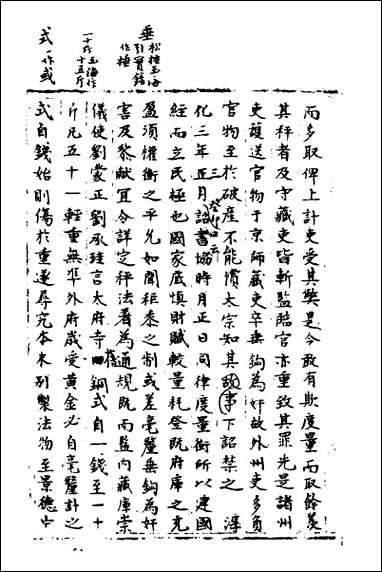 而多取俾上計吏受其弊是令敢有欺度量而取餘羨
其秤者及守藏吏皆斬監臨官亦重致其罪先是諸州
吏護送官物于京師藏吏卒垂鈎為奸故外州吏多負
官物至於破產不能償太宗知其事下詔禁之 淳
化三年正月詔書協時月正日同律度量衡所以建國
經而立民極也國家底慎財賦較量耗登既府庫之充
盈須權衡之平允如聞秬黍之制或差毫釐垂鈎為奸
害及黎獻宜令詳定秤法著為通規既而監內藏庫崇
儀使劉蒙正劉承珪言太府寺舊銅式自一錢至一十
斤凡五十一輕重無準外府歲受黃金必自毫釐計之
式自錢始則傷於重遂尋究本末別製法物至景德中
垂 松按玉海
引實錄
作捶
一十斤玉海作
十五斤
式一作或